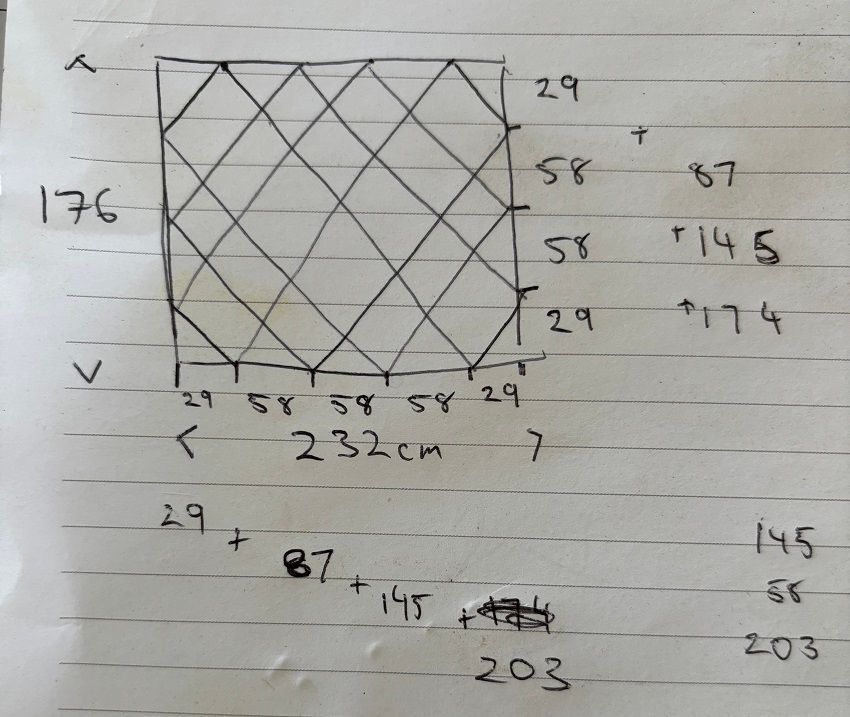 29
+
58 87
176
58 +145
29 +174
29 58 58 58 29
232cm
29 + 87 + 145 + 203
145
58
203